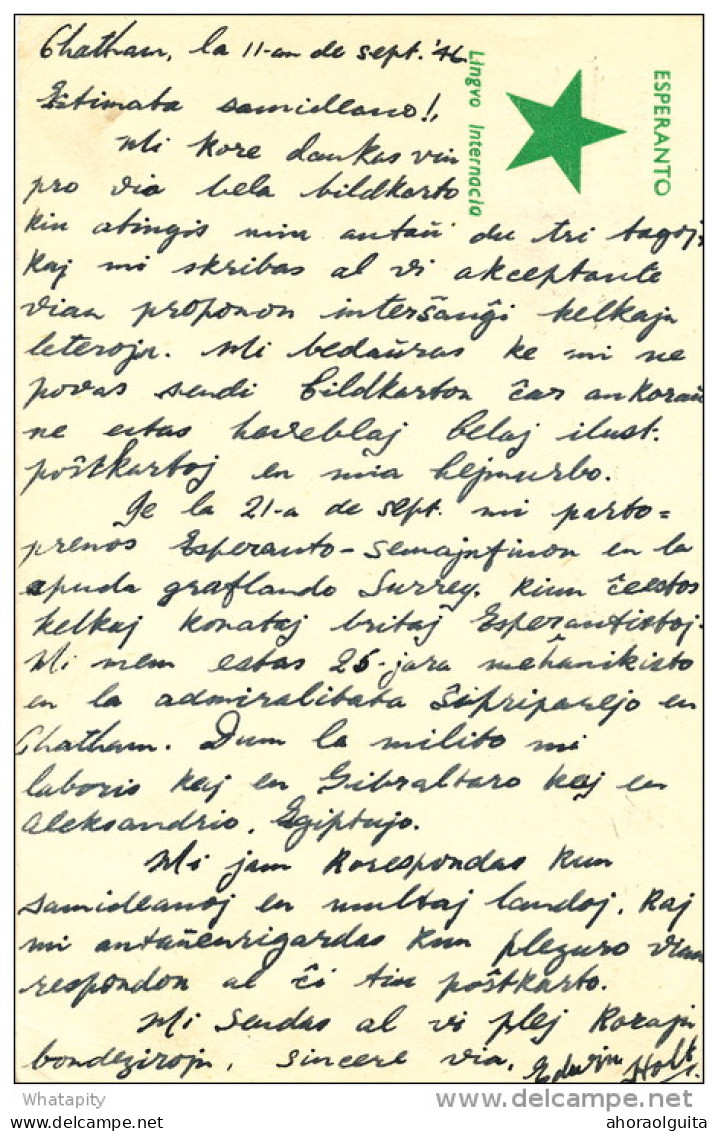 Chatham, la 11-an de sept. '46
Estimata samideano!,
Mi kore dankas vin
pro via bela bildkarto
kiu atingis min antaŭ du tri tagoj,
kaj mi skribas al vi akceptante
vian proponon interŝanĝi kelkajn
leterojn. Mi bedaŭras ke mi ne
povas sendi bildkarton ĉar ankoraŭ
ne estas haveblaj belaj ilust.
poŝtkartoj en mia hejmurbo.
Je la 21-a de sept. mi parto=
prenos Esperanto-Semajnfinon en la
apuda graflando Surrey, kiun ĉeestos
kelkaj konataj britaj Esperantistoj.
Mi mem estas 25-jara meĥanikisto
en la admiralitata ŝipriparejo en
Chatham. Dum la milito mi
laboris kaj en Gibraltaro kaj en
Aleksandrio, Egiptujo.
Mi jam korespondas kun
samideanoj en multaj landoj, kaj
mi antaŭenrigardas kun plezuro vian
respondon al ĉi tiu poŝtkarto.
Mi sendas al vi plej korajn
bondezirojn, sincere via, Edwin Holt.
ESPERANTO
Lingvo Internacia
Whatapity
www.delcampe.net
ahoraolguita